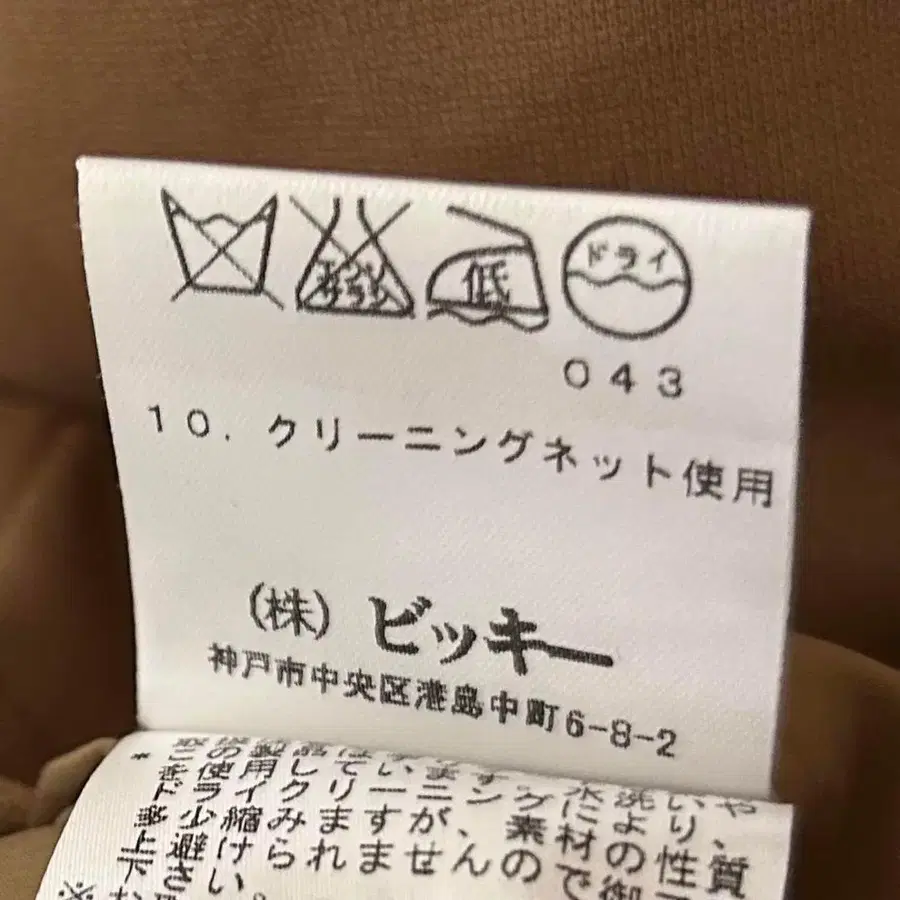 低
ドライ
043
10. クリーニングネット使用
(株) ビッキー
神戸市中央区港島中町6-8-2
を使用しています。水洗いや、
ドライクリーニングにより、
多少縮みますが、素材の性質
上避けられませんので御
下さい。
※